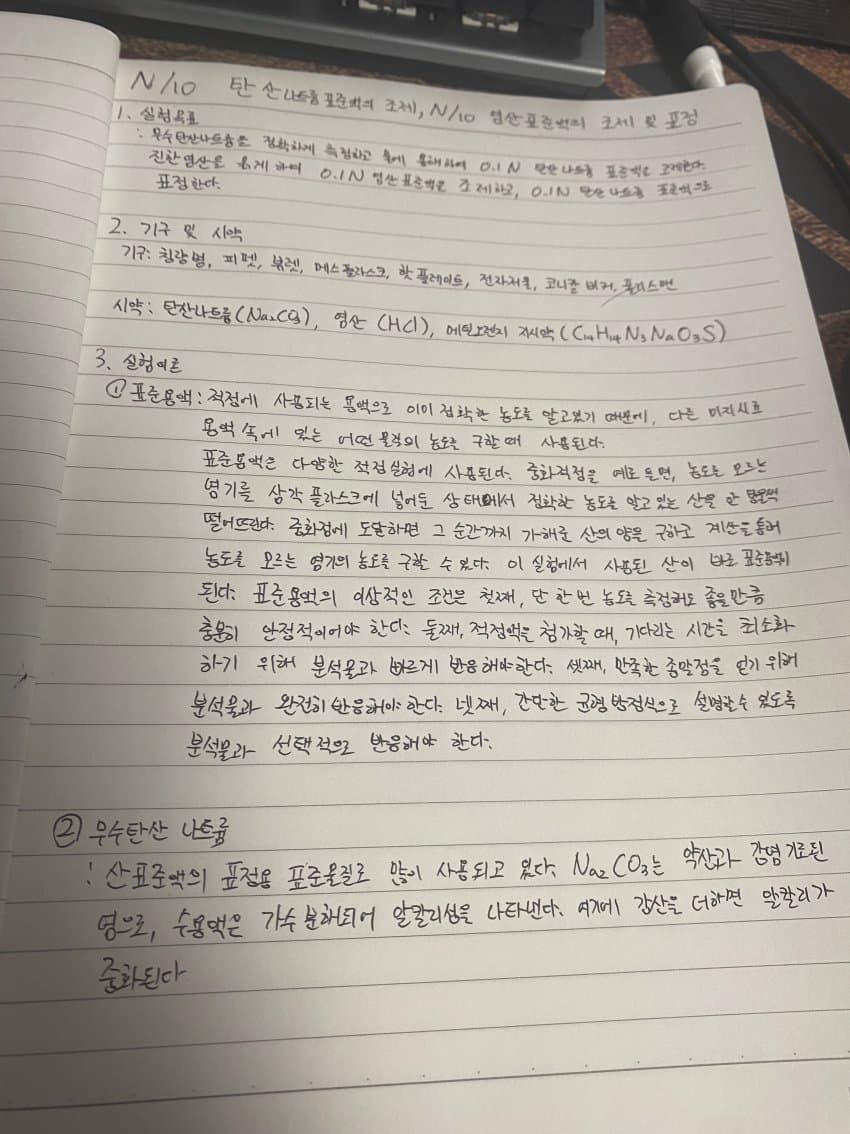 N/10 탄산나트륨 표준액의 조제, N/10 염산 표준액의 조제 및 표정
1. 실험목표
: 무수탄산나트륨을 정확하게 측정하고 물에 용해하여 0.1N 탄산나트륨 표준액을 조제한다.
진한염산을 묽게 하여 0.1N 염산표준액을 조제하고, 0.1N 탄산나트륨 표준액으로
표정한다.
2. 기구 및 시약
기구: 칭량병, 피펫, 뷰렛, 메스플라스크, 핫플레이트, 전자저울, 코니칼 비커,
시약: 탄산나트륨(Na₂CO₃), 염산 (HCl), 메틸오렌지 지시약(C₁₄H₁₄N₃NaO₃S)
3. 실험이론
① 표준용액: 적정에 사용되는 용액으로 이미 정확한 농도를 알고있기 때문에, 다른 미지시료
용액 속에 있는 어떤 물질의 농도를 구할 때 사용된다.
표준용액은 다양한 적정실험에 사용된다. 중화적정을 예로 들면, 농도를 모르는
염기를 삼각 플라스크에 넣어둔 상태에서 정확한 농도를 알고 있는 산을 한 방울씩
떨어뜨린다. 중화점에 도달하면 그 순간까지 가해준 산의 양을 구하고 계산을 통해
농도를 모르는 염기의 농도를 구할 수 있다. 이 실험에서 사용된 산이 바로 표준용액이
된다. 표준용액의 이상적인 조건은 첫째, 단 한번 농도를 측정해도 좋을만큼
충분히 안정적이어야 한다. 둘째, 적정액을 첨가할 때, 기다리는 시간을 최소화
하기 위해 분석물과 빠르게 반응해야한다. 셋째, 만족한 종말점을 얻기 위해
분석물과 완전히 반응해야 한다. 넷째, 간단한 균형 방정식으로 설명할 수 있도록
분석물과 선택적으로 반응해야 한다.
② 무수탄산 나트륨
: 산표준액의 표정용 표준물질로 많이 사용되고 있다. Na₂CO₃는 약산과 강염기로된
염으로, 수용액은 가수분해되어 알칼리성을 나타낸다. 여기에 강산을 더하면 알칼리가
중화된다